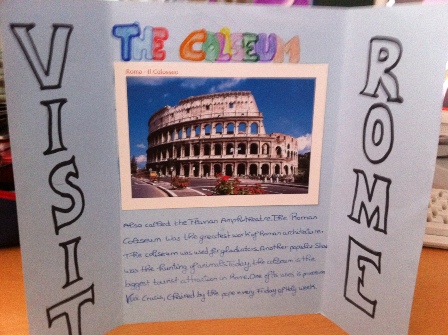 VISIT
THE COLISEUM
Roma - Il Colosseo
Also called the Flavian Amphitheatre. The Roman
Coliseum was the greatest work of Roman architecture.
The coliseum was used for gladiators. Another popular show
was the hunting of animals. Today, the coliseum is the
biggest tourist attraction in Rome. One of its uses is
Via Crucis, offered by the pope every Friday of Holy week.
ROME